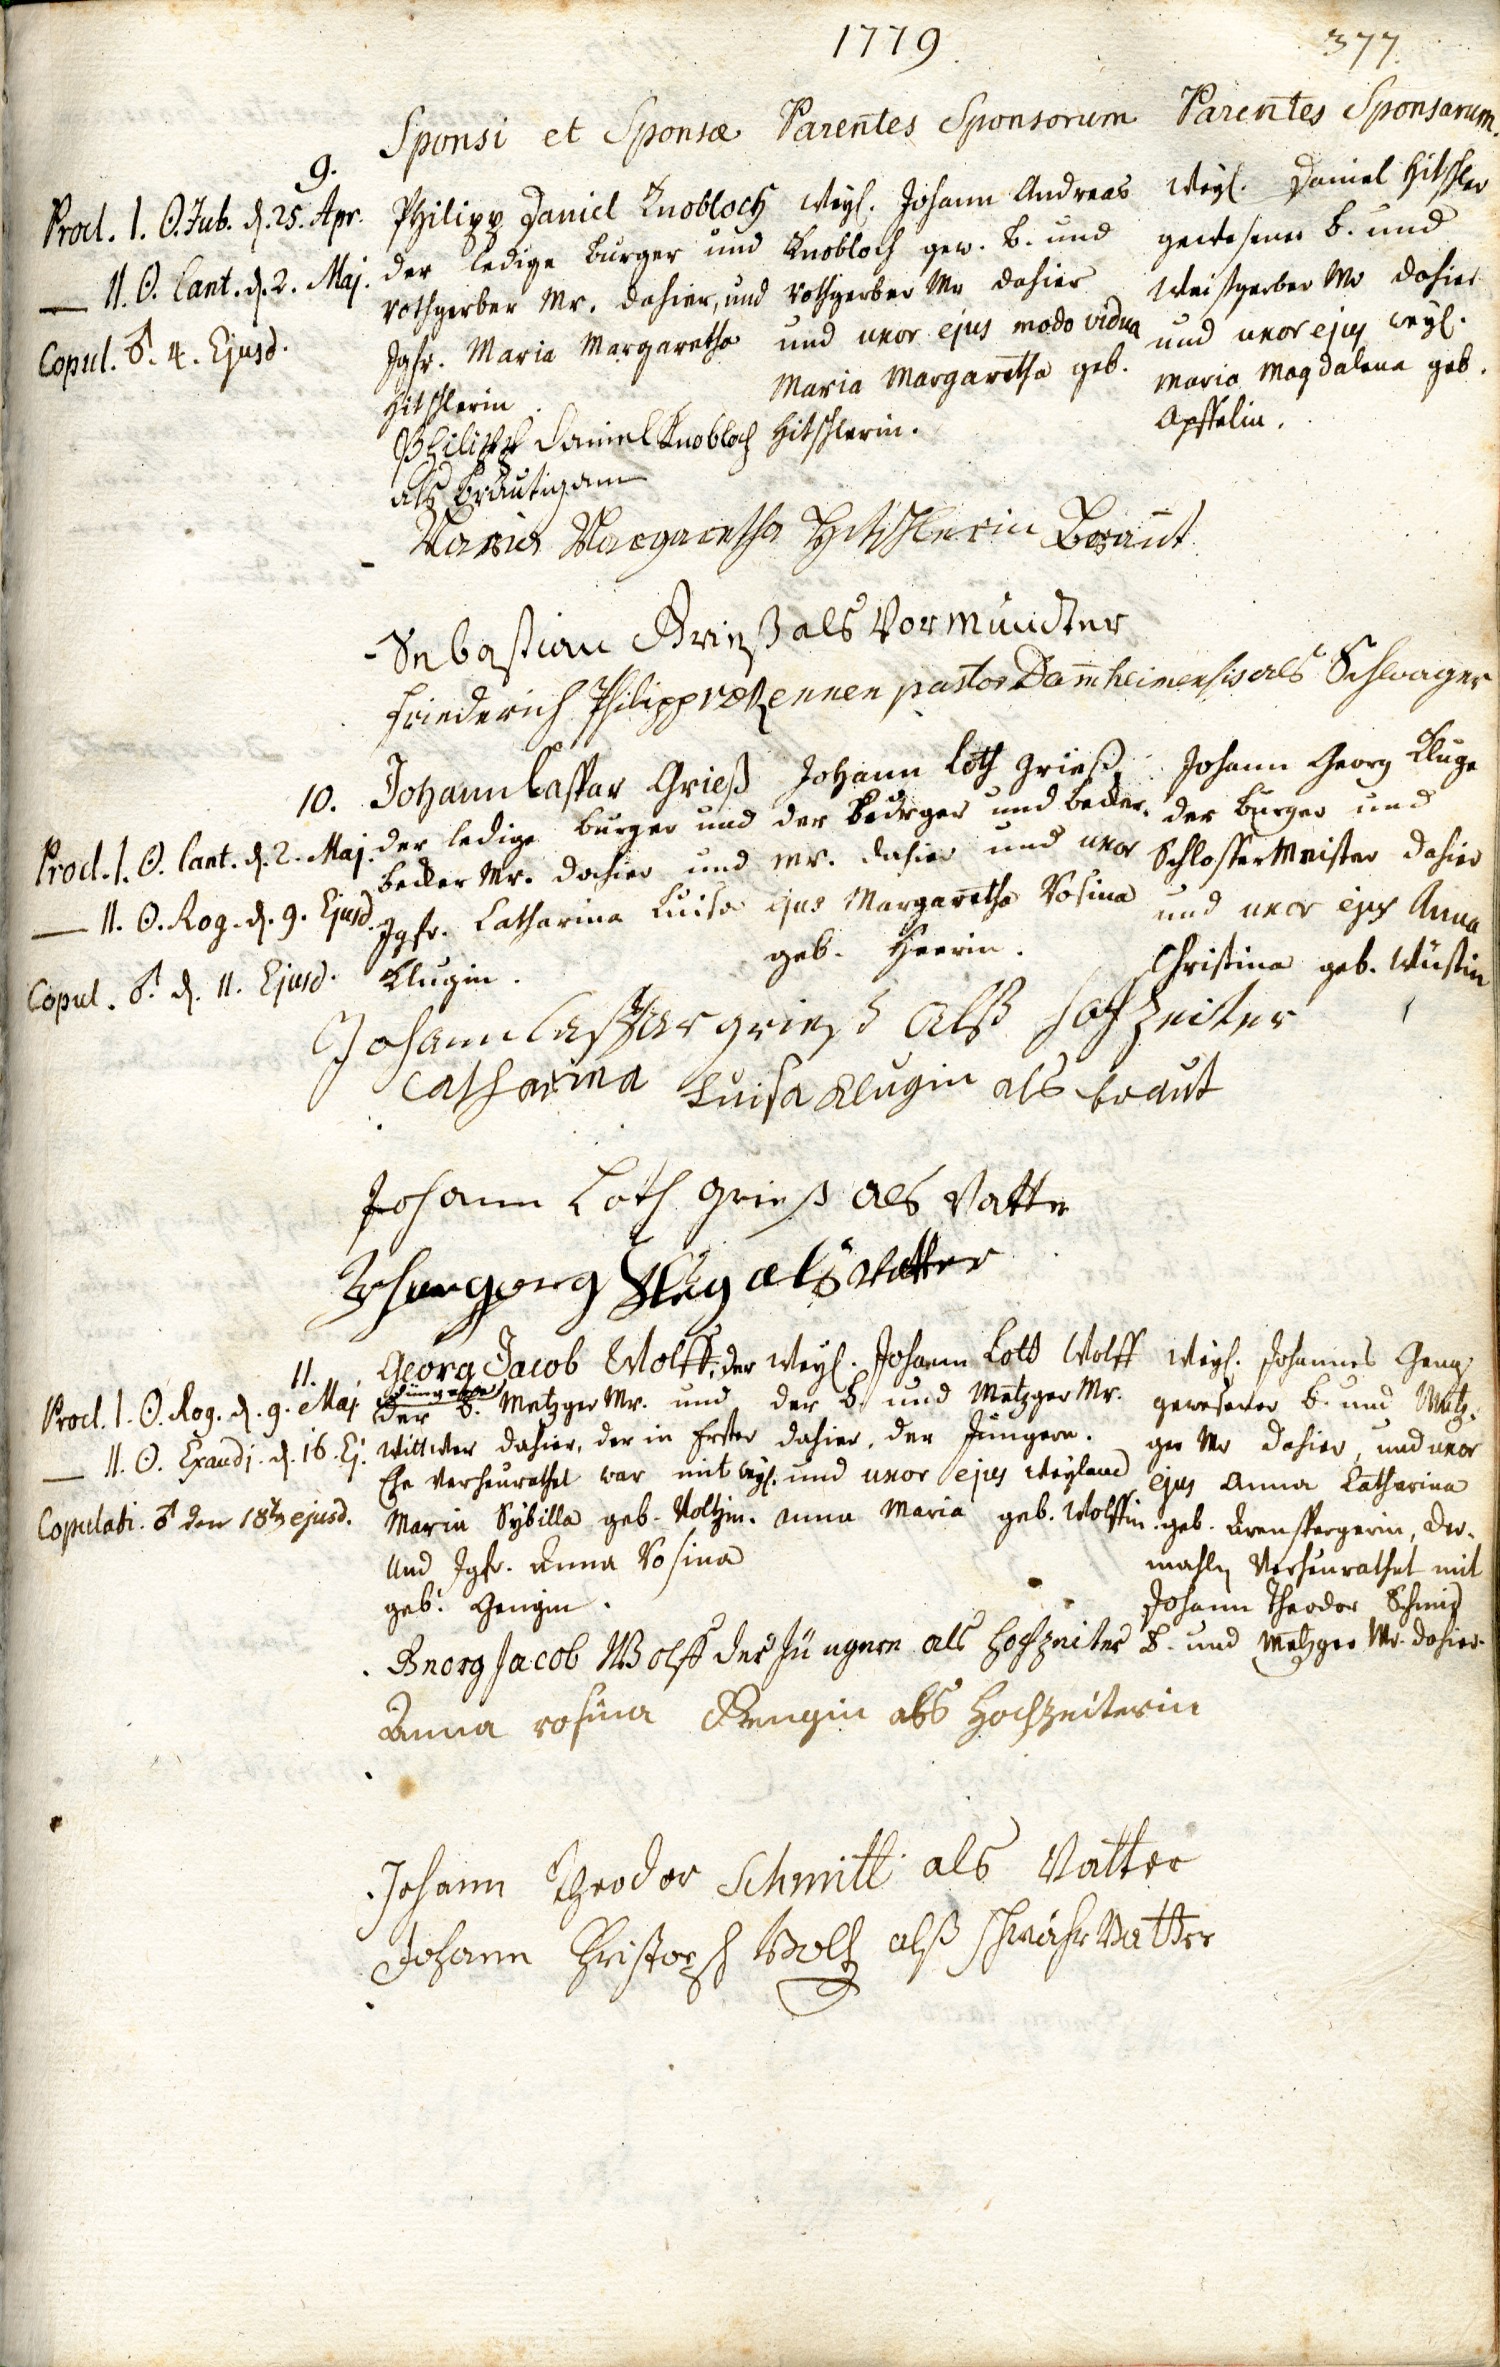 1779.
377.
Sponsi et Sponsæ
Parentes Sponsorum
Parentes Sponsarum.
9.
Procl. I. O. Jub. d. 25. Apr.
— II. O. Cant. d. 2. Maj.
Copul. ♂. 4. Ejusd.
Philipp Daniel Knobloch
der ledige burger und
rothgerber Mr. dahier, und
Jgfr. Maria Margaretha
Hitschlerin.
weyl. Johann Andreas
Knobloch gew. b. und
rothgerber Mr dahier
und uxor ejus modo vidua
Maria Margaretha geb.
Hitschlerin.
weyl. Daniel Hitschler
gewesener b. und
weisgerber Mr dahier
und uxor ejus weyl.
Maria Magdalena geb.
Apffelin.
Philipp Daniel Knobloch
als bräutigam
Maria Margaretha Hitschlerin Braut
Sebastian Grieß als Vormündter
Friederich Philipp pastor Dammheimensis als Schwager
10.
Procl. I. O. Cant. d. 2. Maj.
— II. O. Rog. d. 9. Ejusd.
Copul. ♂. d. 11. Ejusd.
Johann Caspar Grieß
der ledige burger und
becker Mr. dahier und
Jgfr. Catharina Luisa
Klugin.
Johann Loth Grieß,
der burger und becker
Mr. dahier und uxor
ejus Margaretha Rosina
geb. Heerin.
Johann Georg Kluge
der burger und
Schlosser Meister dahier
und uxor ejus Anna
Christina geb. Wüstin
Johann Caspar grieß alß hochzeiter
Catharina Luisa Klugin als braut
Johann Loth grieß als Vatter
als vatter
11.
Procl. I. O. Rog. d. 9. Maj.
— II. O. Exaudi. d. 16. Ej.
Copulati. ♂ den 18ten ejusd.
Georg Jacob Wolff, der
jüngere
der b. Metzger Mr. und
wittwer dahier, der in Erster
Ehe verheurathet war mit weyl.
Maria Sybilla geb. Voltzin.
und Jgfr. Anna Rosina
geb. Gengin.
weyl. Johann Lott Wolff
der b. und Metzger Mr.
dahier, der Jüngere.
und uxor ejus weyland
Anna Maria geb. Wolffin.
weyl. Johannes Geng
gewesener b. und Metz-
ger Mr dahier, und uxor
ejus Anna Catharina
geb. Krenspergerin, der-
mahln verheurathet mit
Johann Theodor Schmid
b. und Metzger Mr. dahier.
Georg Jacob Wolff der Jüngere als hochzeiter
Anna rosina Gengin als hochzeiterin
Johann Theodor Schmitt als Vatter
Johann Christoph Voltz alß schwähr Vatter